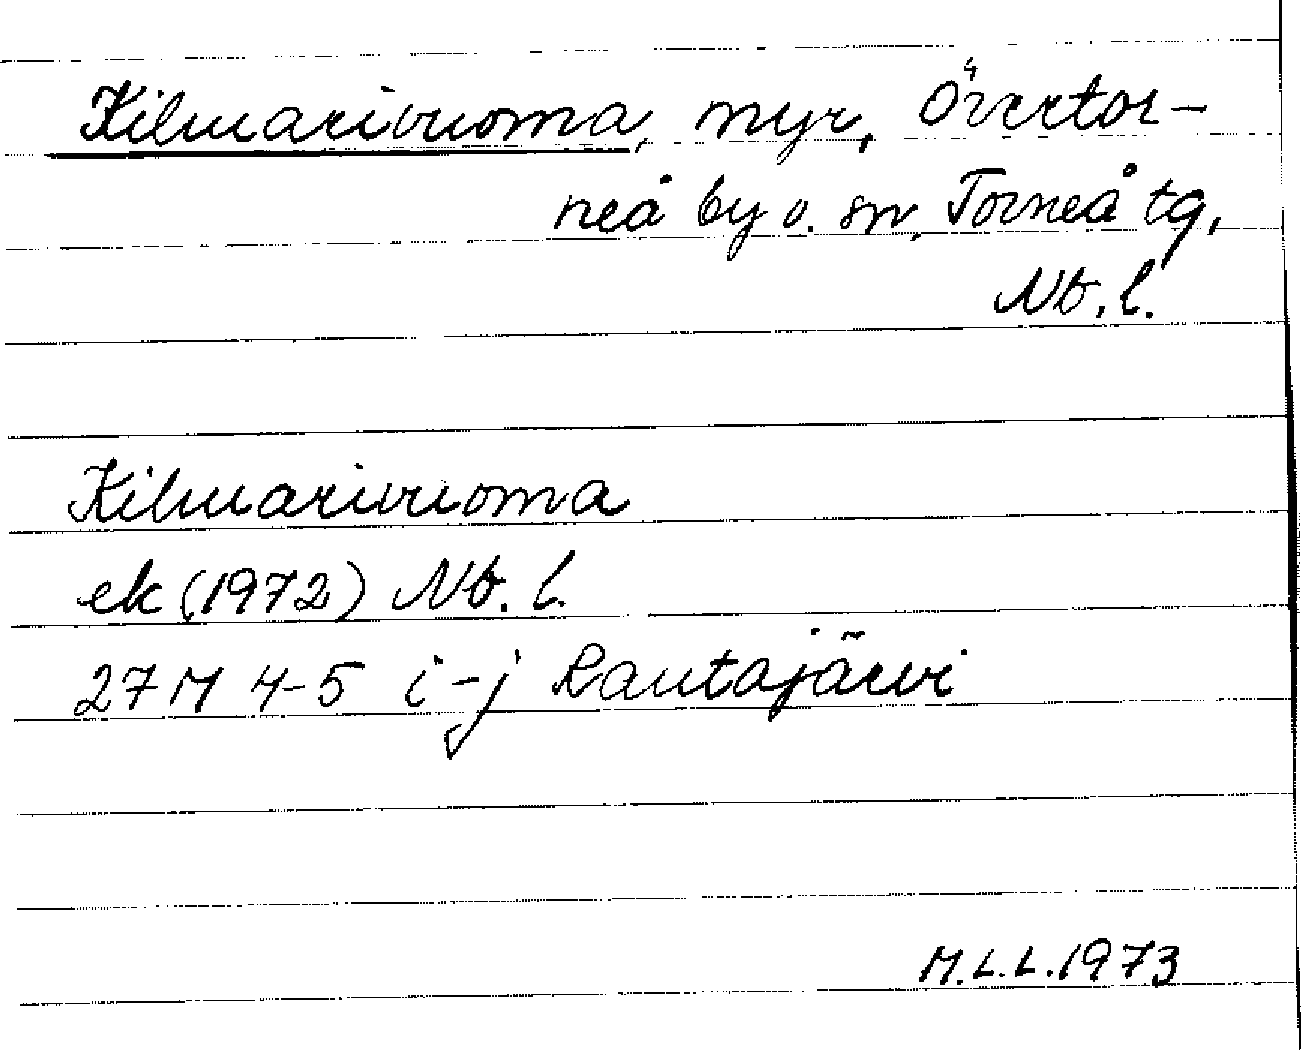 Kilmarivuoma, myr, Övertor-
neå by o. sn, Torneå tg,
Nb. l.
Kilmarivuoma
ek (1972) Nb. l.
27M 4-5 i-j Rautajärvi
M.L.L. 1973